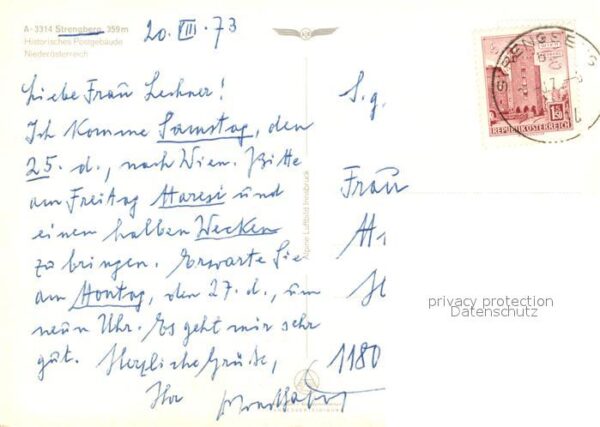 A-3314 Strengberg, 359m
Historisches Postgebäude
Niederösterreich
20. VIII. 73
Liebe Frau Lechner!
Ich komme Samstag, den
25. d., nach Wien. Bitte
am Freitag Haresi und
einen halben Wecken
zu bringen. Erwarte Sie
am Montag, den 27. d., um
neun Uhr. Es geht mir sehr
gut. Herzliche Grüße,
Ihr
S. g.
Frau
1180
Alpine Luftbild Innsbruck
REPUBLIK ÖSTERREICH
privacy protection
Datenschutz